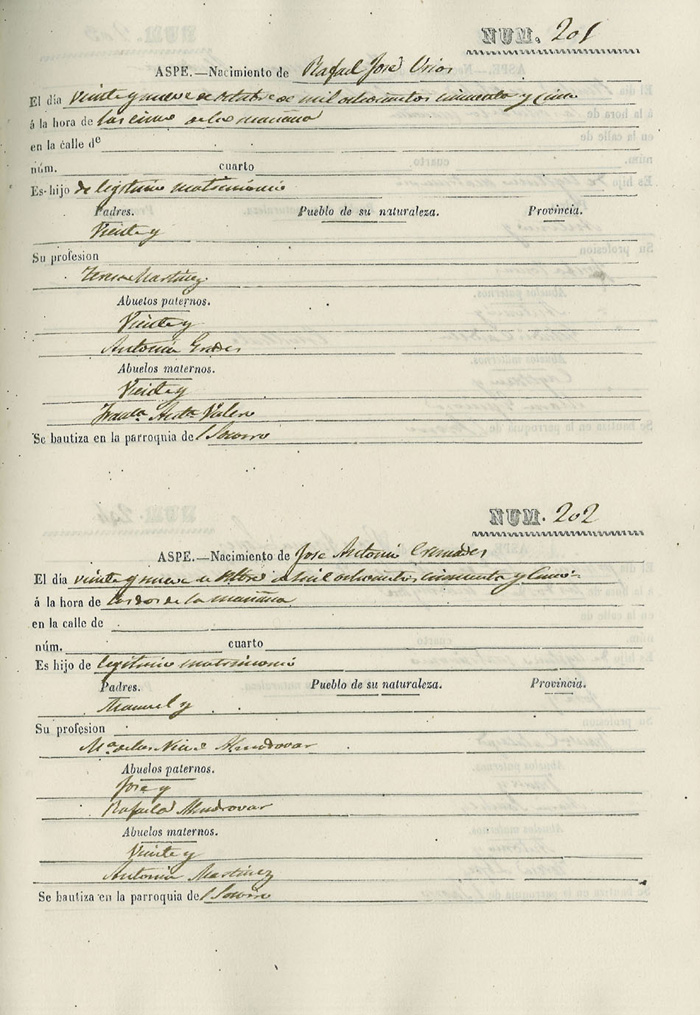 NUM. 201
ASPE.—Nacimiento de Rafael José Urios
El dia veinte y nueve de Octubre de mil ochocientos cincuenta y cinco
á la hora de las cinco de la mañana
en la calle de
núm. cuarto
Es hijo de legitimo matrimonio
Padres. Pueblo de su naturaleza. Provincia.
Vicente y
Su profesion
Teresa Martinez
Abuelos paternos.
Vicente y
Antonia
Abuelos maternos.
Vicente y
Valero
Se bautiza en la parroquia de l Socorro
NUM. 202
ASPE.—Nacimiento de Jose Antonio Cremades
El dia veinte y nueve de de mil ochocientos cincuenta y cinco
á la hora de las dos de la mañana
en la calle de
núm. cuarto
Es hijo de legitimo matrimonio
Padres. Pueblo de su naturaleza. Provincia.
Manuel y
Su profesion
Mª de las Nieves Almodovar
Abuelos paternos.
Jose y
Rafaela Almodovar
Abuelos maternos.
Vicente y
Antonia Martinez
Se bautiza en la parroquia de l Socorro